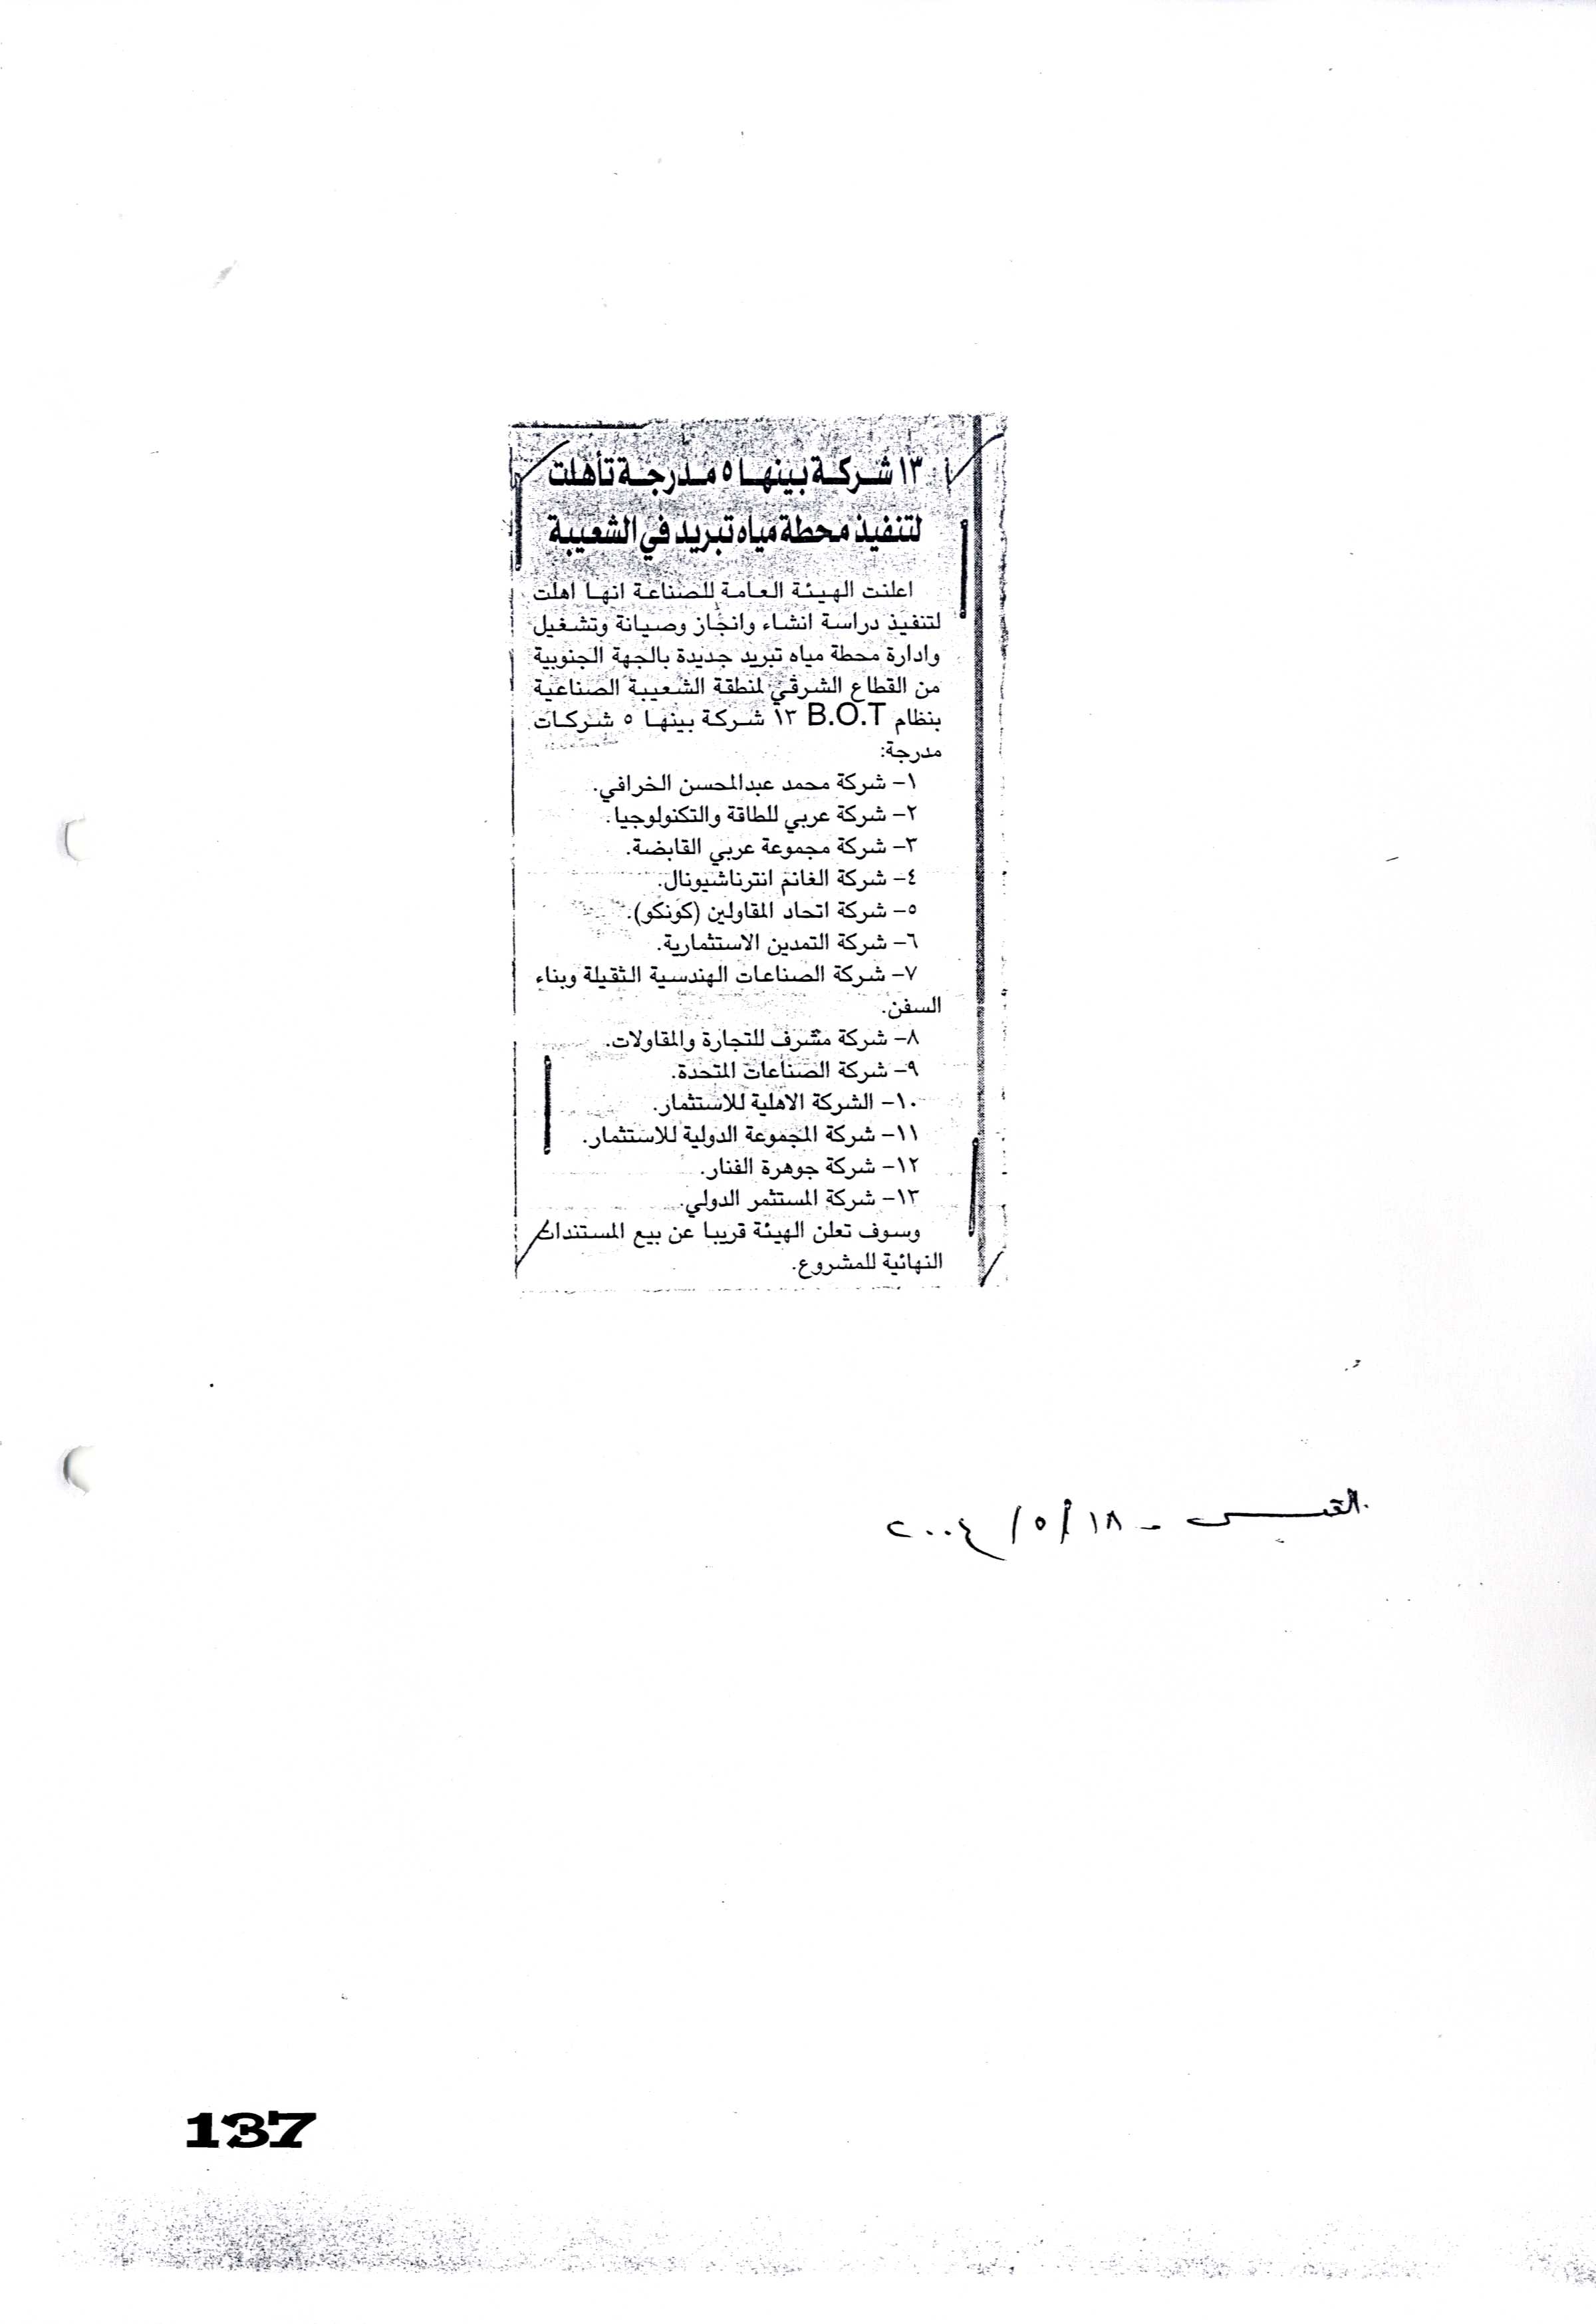 ١٣ شركة بينها ٥ مدرجة تأهلت
لتنفيذ محطة مياه تبريد في الشعيبة
اعلنت الهيئة العامة للصناعة انها اهلت
لتنفيذ دراسة انشاء وانجاز وصيانة وتشغيل
وادارة محطة مياه تبريد جديدة بالجهة الجنوبية
من القطاع الشرقي لمنطقة الشعيبة الصناعية
بنظام B.O.T ١٣ شركة بينها ٥ شركات
مدرجة:
١- شركة محمد عبدالمحسن الخرافي.
٢- شركة عربي للطاقة والتكنولوجيا.
٣- شركة مجموعة عربي القابضة.
٤- شركة الغانم انترناشيونال.
٥- شركة اتحاد المقاولين (كونكو).
٦- شركة التمدين الاستثمارية.
٧- شركة الصناعات الهندسية الثقيلة وبناء
السفن.
٨- شركة مشرف للتجارة والمقاولات.
٩- شركة الصناعات المتحدة.
١٠- الشركة الاهلية للاستثمار.
١١- شركة المجموعة الدولية للاستثمار.
١٢- شركة جوهرة الفنار.
١٣- شركة المستثمر الدولي.
وسوف تعلن الهيئة قريبا عن بيع المستندات
النهائية للمشروع.
القبس - ١٨/٥/٢٠٠٤
137